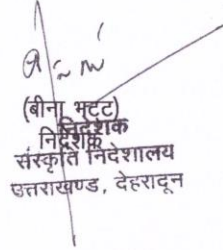 (बीना भट्ट)
निदेशक
निदेशक
संस्कृति निदेशालय
उत्तराखण्ड, देहरादून